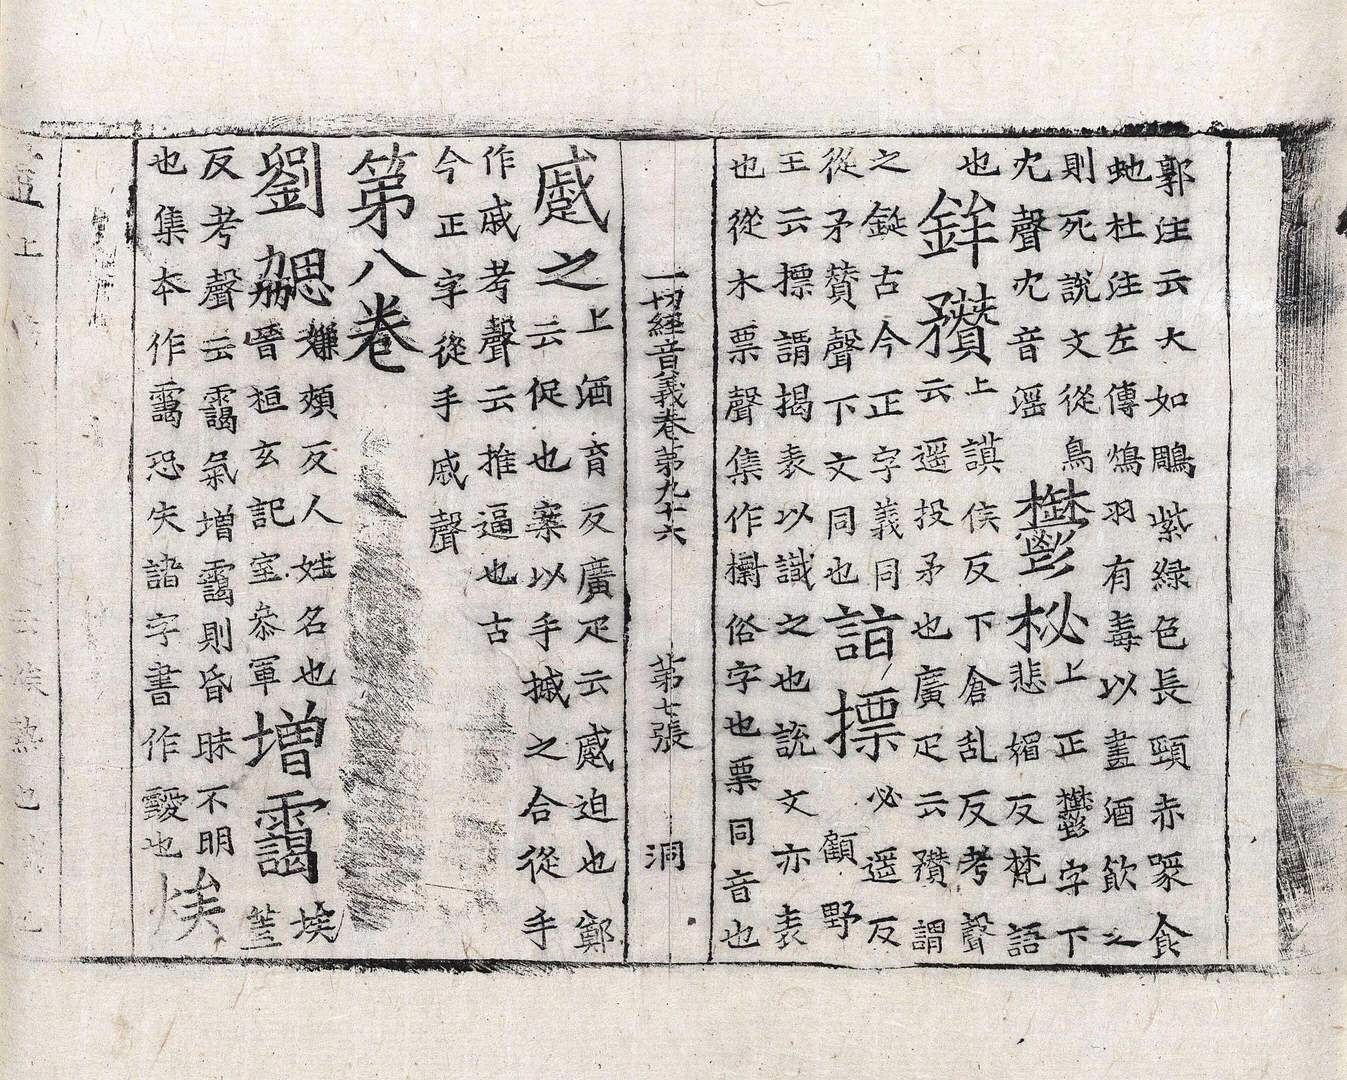 郭注云大如鵰紫綠色長頸赤喙食
虵杜注左傳鴆羽有毒以畫酒飲之
則死說文從鳥
冘聲冘音滛
欝柲
上正欝字下
悲媚反梵語
也
鉾䂎
上謨侯反下倉乱反考聲
云遥投矛也廣疋云䂎謂
之鋋古今正字義同
從矛贊聲下文同也
諳摽
必遥反
顧野
王云摽謂揭表以識之也說文亦表
也從木票聲集作㯹俗字也票同音也
一切經音義卷第九十六
第七張
洞
蹙之
上酒育反廣疋云蹙迫也鄭
云促也案以手摵之合從手
作戚考聲云推逼也古
今正字從手戚聲
第八卷
劉勰
嫌頰反人姓名也
晉桓玄記室叅軍
增靄
埃
蓋
反考聲云靄氣増靄則昏昧不明
也集本作靄恐失諸字書作靉也
埃